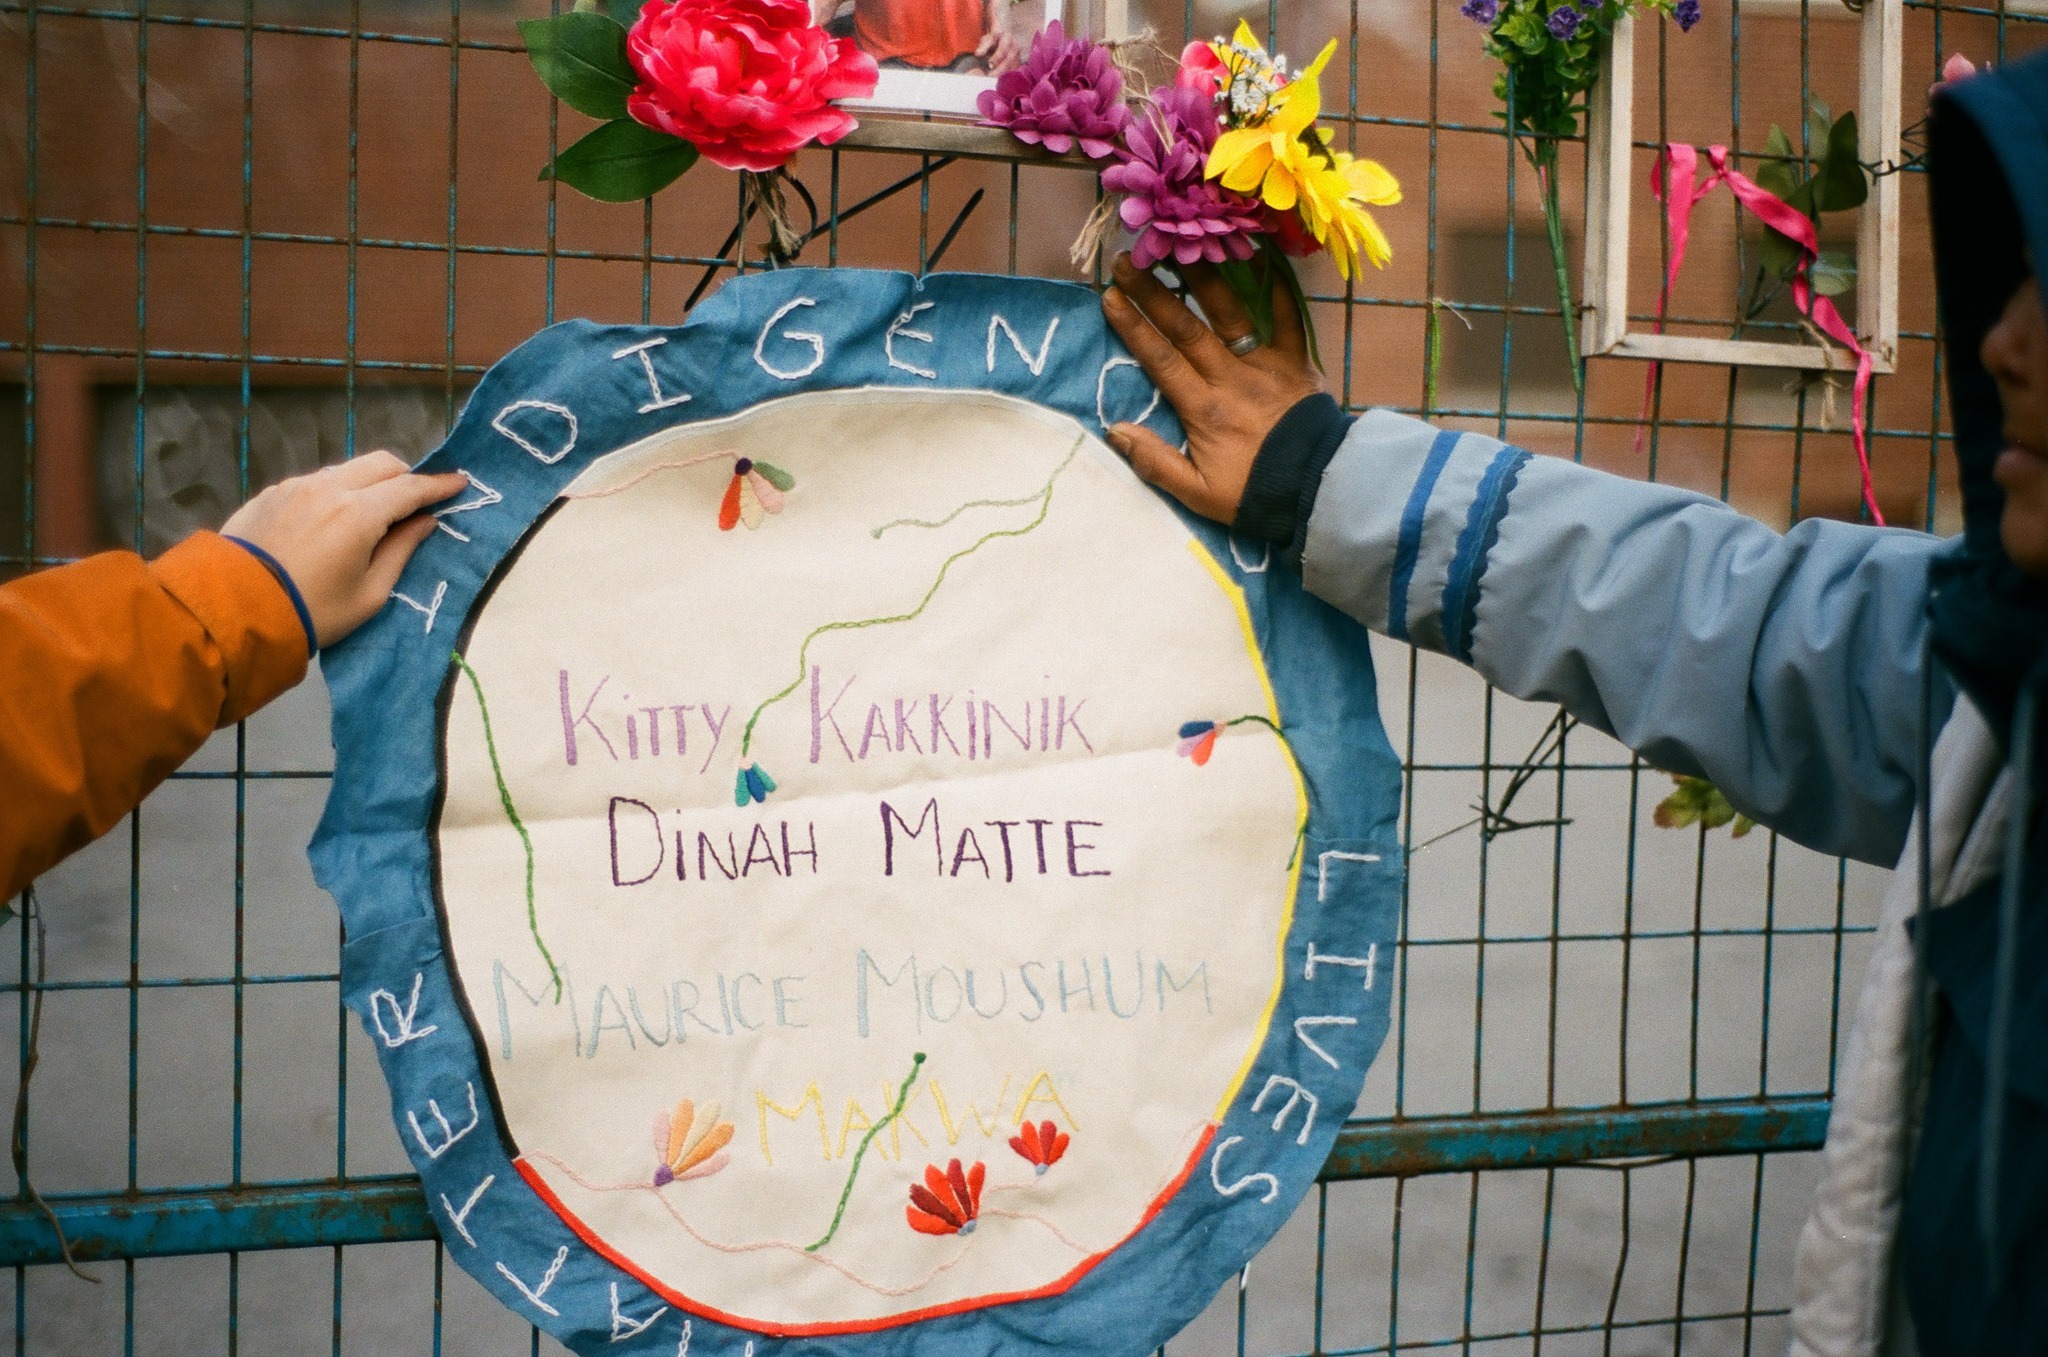 INDIGENOU
LIVES
MATTER
KiTTY KAKKiNiK
DiNAH MATTE
MAURICE MOUSHUM
MAKWA